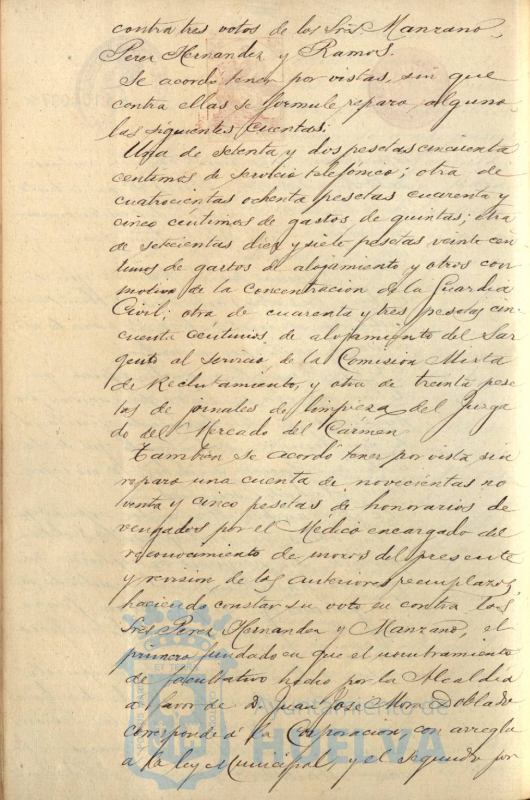 contra tres votos de los Sres. Manzano,
Perez Hernandez y Ramos.
Se acordó tener por vistas, sin que
contra ellas se formule reparo alguno,
las siguientes cuentas:
Una de setenta y dos pesetas cincuenta
centimos de servicio telefónico; otra de
cuatrocientas ochenta pesetas cuarenta y
cinco céntimos de gastos de quintas; otra
de setecientas diez y siete pesetas veinte cen
timos de gastos de alojamiento y otros con
motivo de la concentracion de la Guardia
Civil; otra de cuarenta y tres pesetas cin
cuenta céntimos de alojamiento del Sar
gento al servicio de la Comision Mixta
de Reclutamiento, y otra de treinta pese
tas de jornales de limpieza del Juzga
do del Mercado del Cármen
Tambien se acordó tener por vista, sin
reparo una cuenta de novecientas no
venta y cinco pesetas de honorarios de
vengados por el Médico encargado del
reconocimiento de mozos del presente
y revision de los anteriores reemplazos,
haciendo constar su voto en contra los
Sres. Perez Hernandez y Manzano, el
primero fundado en que el nombramiento
de facultativo hecho por la Alcaldia
a favor de D. Juan José Mora Doblado
corresponde á la Corporacion, con arreglo
a la ley Municipal, y el segundo por
Ayuntamiento de
HUELVA